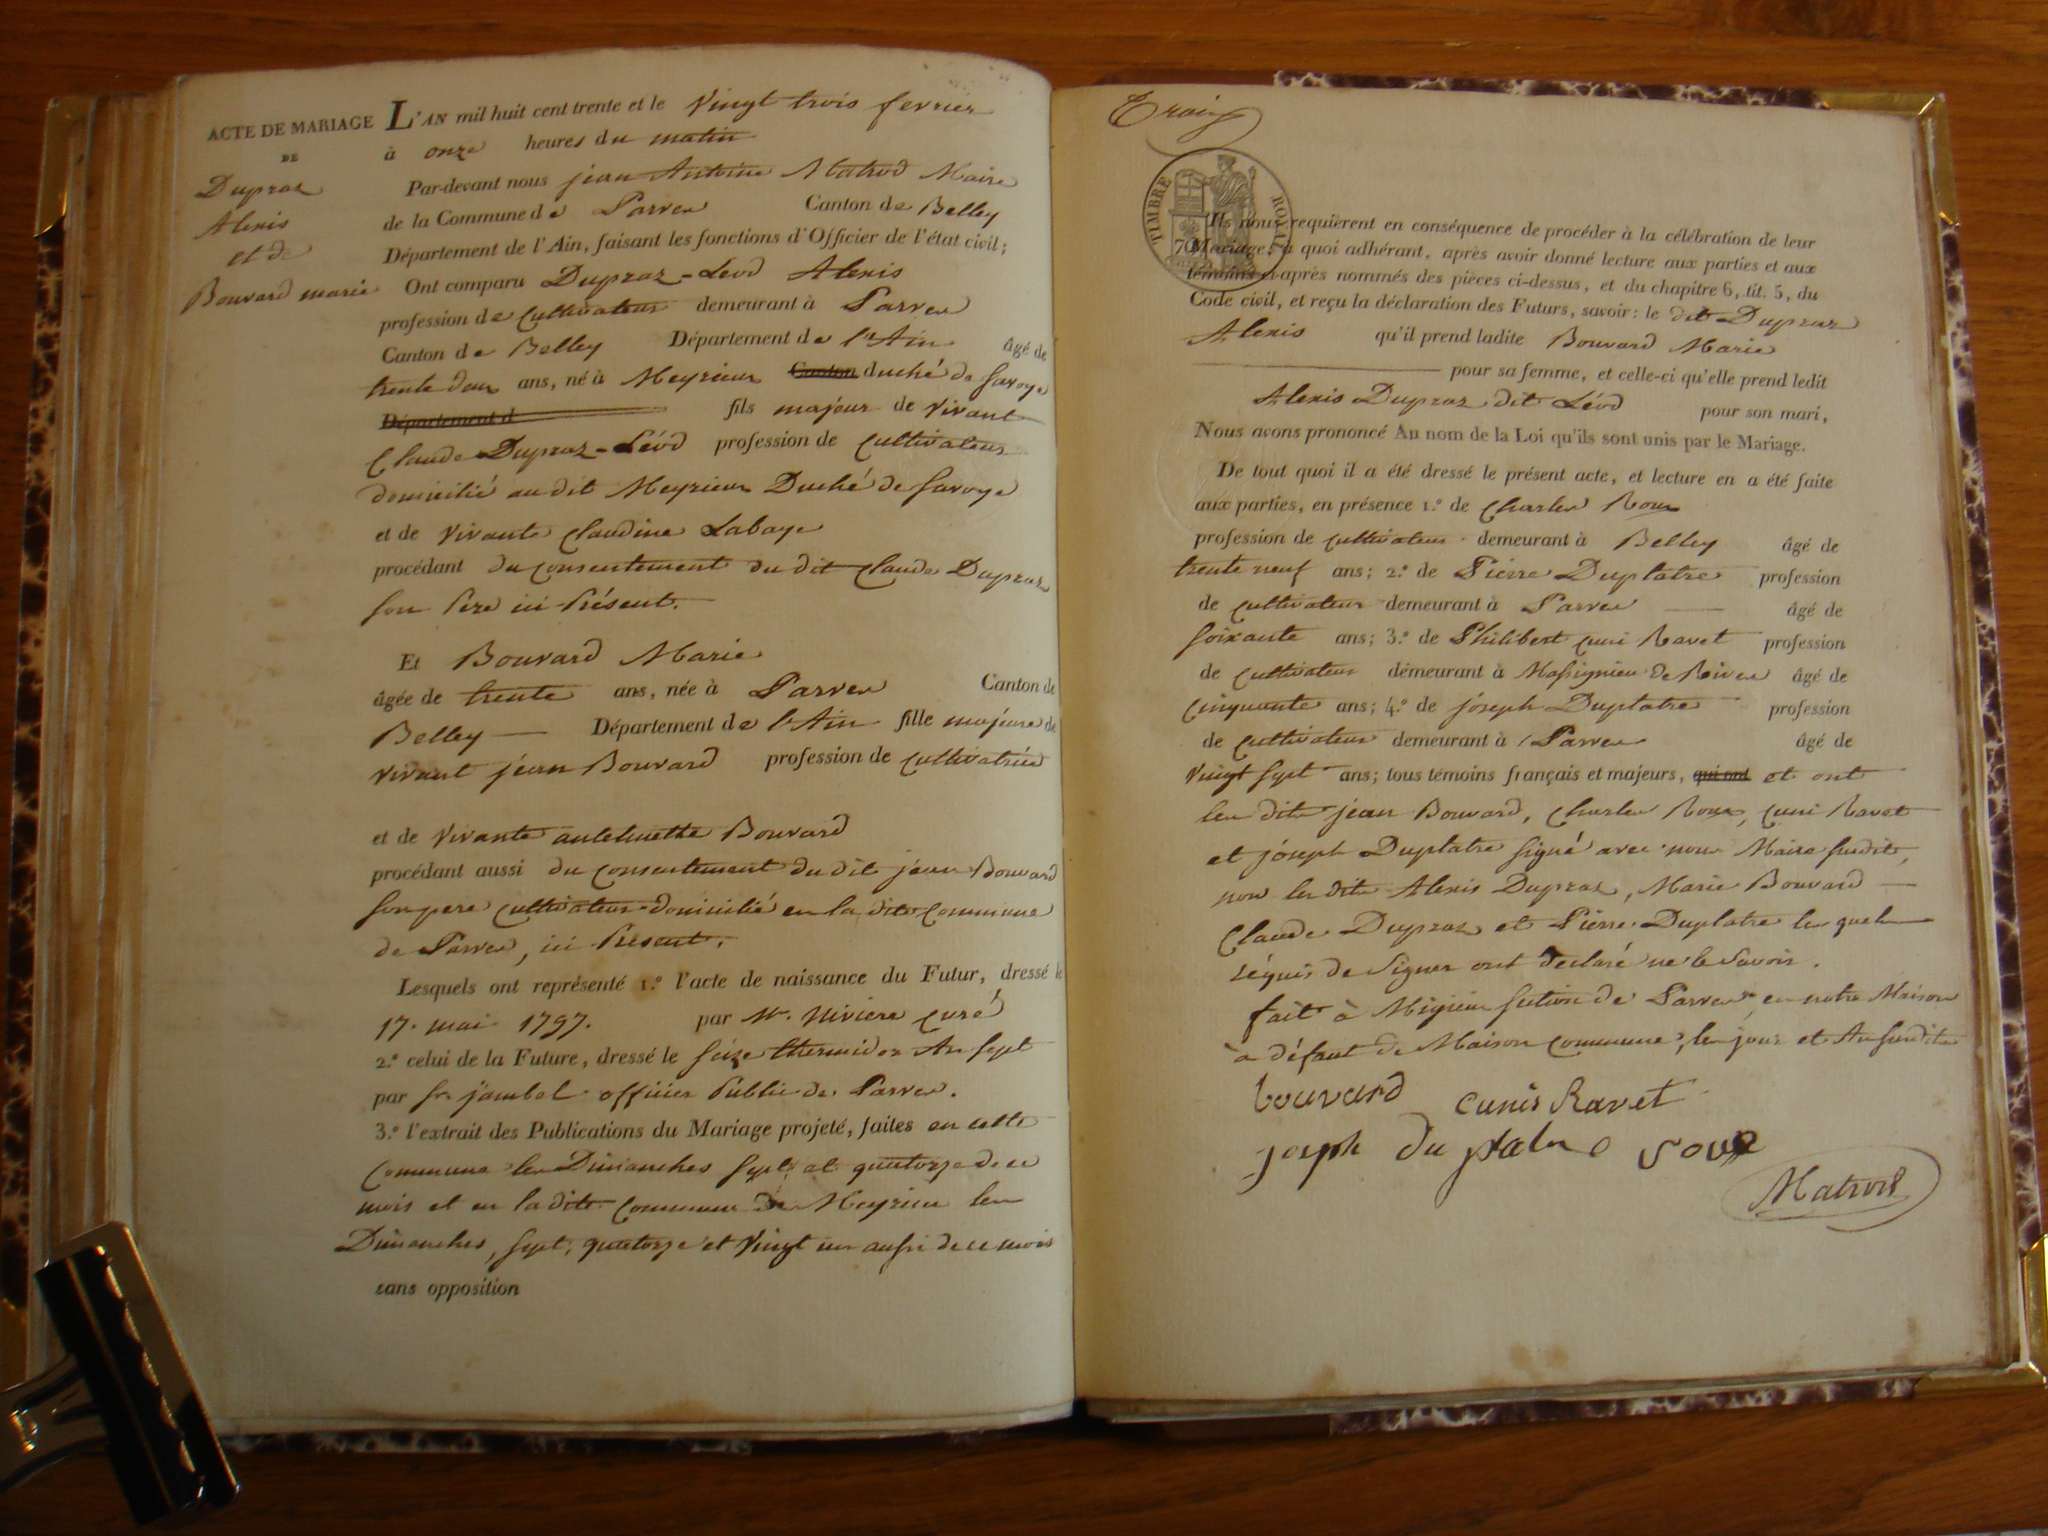 ACTE DE MARIAGE
DE
Dupraz
Alexis
et de
Bouvard marie
L'AN mil huit cent trente et le Vingt trois fevrier
à onze heures du matin
Par-devant nous jean Antoine Matrod Maire
de la Commune de Parves Canton de Belley
Département de l'Ain, faisant les fonctions d'Officier de l'état civil;
Ont comparu Dupraz-Léod Alexis
profession de Cultivateur demeurant à Parves
Canton de Belley Département de l'Ain âgé de
trente deux ans, né à Meyrieux Canton duché de Savoye
Département d fils majeur de vivant
Claude Dupraz-Léod profession de Cultivateur
domicilié au dit Meyrieux Duché de Savoye
et de vivante Claudine Labaye
procédant du consentement du dit Claude Dupraz
son Père ici Présent.
Et Bouvard Marie
âgée de trente ans, née à Parves Canton de
Belley Département de l'Ain fille majeure de
vivant jean Bouvard profession de Cultivatrice
et de vivante Bouvard
procédant aussi du consentement du dit jean Bouvard
son pere cultivateur domicilié en la dite Commune
de Parves, ici Présent.
Lesquels ont représenté 1.º l'acte de naissance du Futur, dressé le
17. mai 1797. par Mr. Curé
2.º celui de la Future, dressé le Seize thermidor An Sept
par Sr. jambel officier Public de Parves.
3.º l'extrait des Publications du Mariage projeté, faites en cette
Commune les Dimanches Sept et quatorze de ce
mois et en la dite Commune de Meyrieux les
Dimanches, Sept, quatorze et Vingt un aussi de ce mois
sans opposition
TIMBRE ROYAL
70
Ils nous requièrent en conséquence de procéder à la célébration de leur
Mariage; à quoi adhérant, après avoir donné lecture aux parties et aux
témoins ci-après nommés des pièces ci-dessus, et du chapitre 6, tit. 5, du
Code civil, et reçu la déclaration des Futurs, savoir: le dit Dupraz
Alexis qu'il prend ladite Bouvard Marie
pour sa femme, et celle-ci qu'elle prend ledit
Alexis Dupraz dit Léod pour son mari,
Nous avons prononcé Au nom de la Loi qu'ils sont unis par le Mariage.
De tout quoi il a été dressé le présent acte, et lecture en a été faite
aux parties, en présence 1.º de Charles Roux
profession de cultivateur demeurant à Belley âgé de
trente neuf ans; 2.º de Pierre Duplatre profession
de cultivateur demeurant à Parves âgé de
soixante ans; 3.º de Philibert Cuni Ravet profession
de cultivateur demeurant à Massignieu de Rives âgé de
cinquante ans; 4.º de joseph Duplatre profession
de cultivateur demeurant à Parves âgé de
Vingt Sept ans; tous témoins français et majeurs, qui ont et ont
les dits jean Bouvard, Charles Roux, Cuni Ravet
et joseph Duplatre signé avec nous Maire susdit,
non les dits Alexis Dupraz, Marie Bouvard
Claude Dupraz et Pierre Duplatre les quels
réquis de Signer ont declaré ne le Savoir.
fait à section de Parves, en notre Maison
à défaut de Maison Commune, les jour et An susdits
bouvard cunis Ravet
joseph du platre roux
Matrod